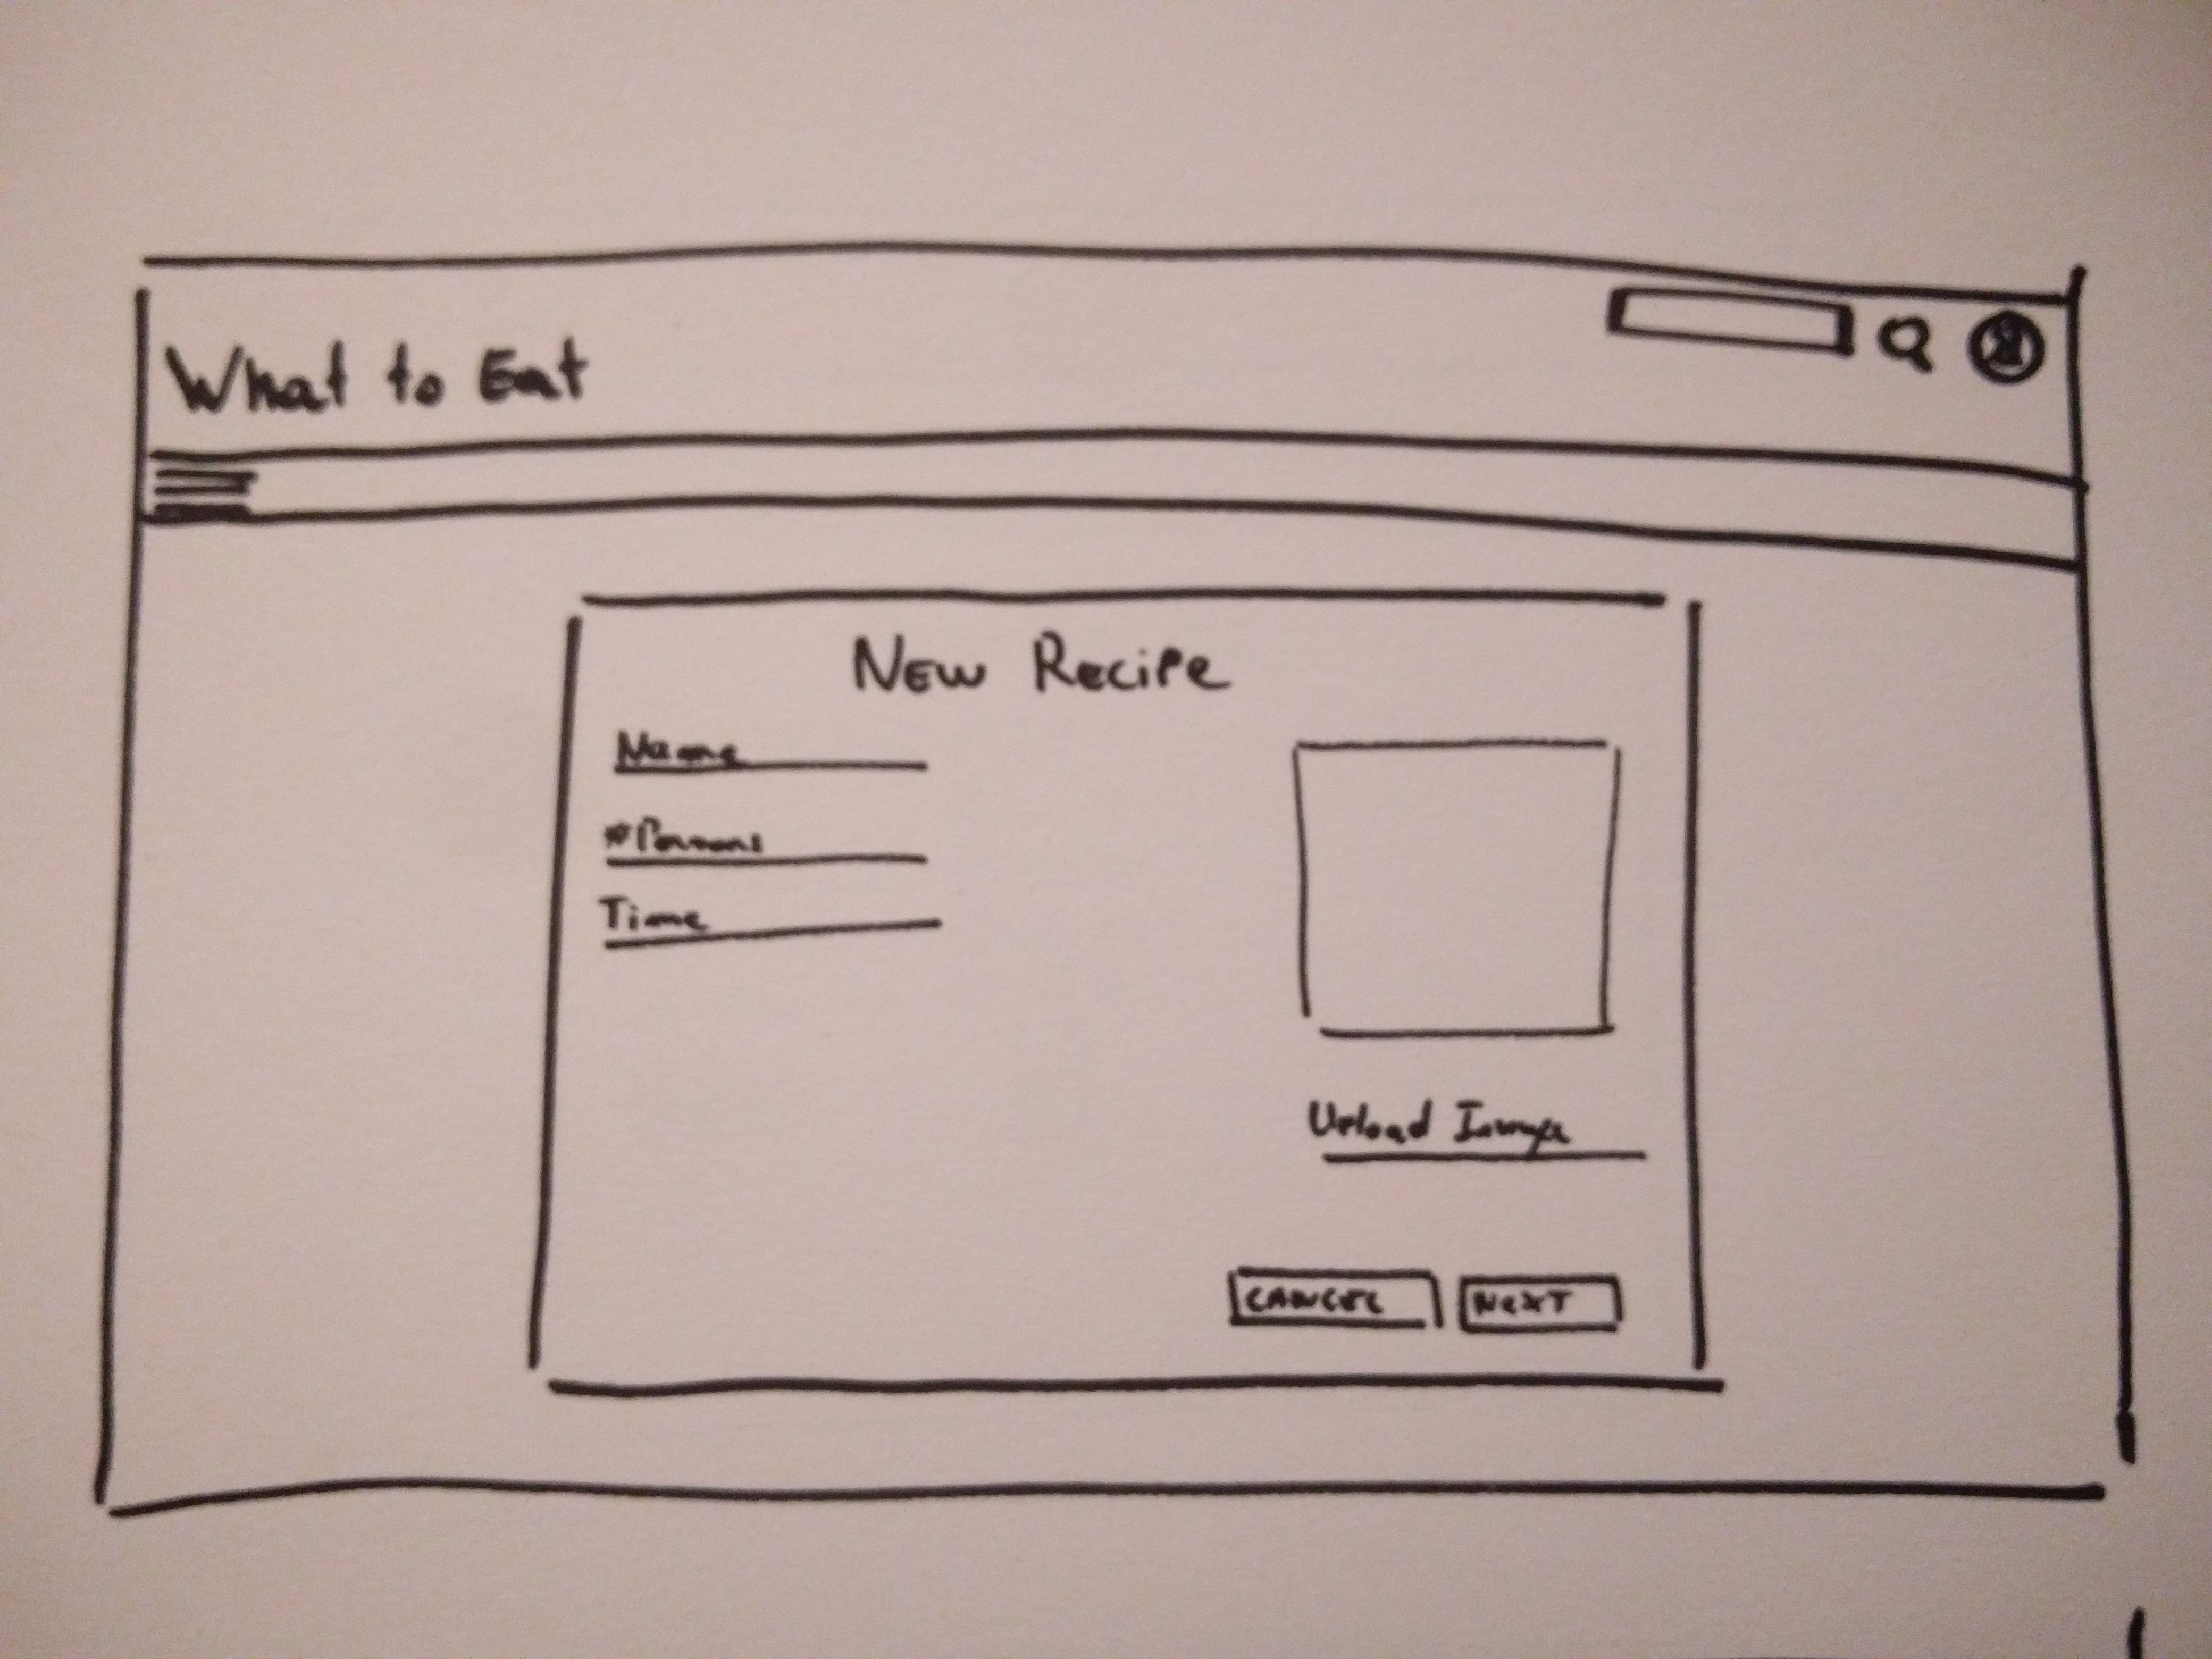 What to Eat
New Recipe
Name
#Persons
Time
Upload Image
CANCEL
NEXT